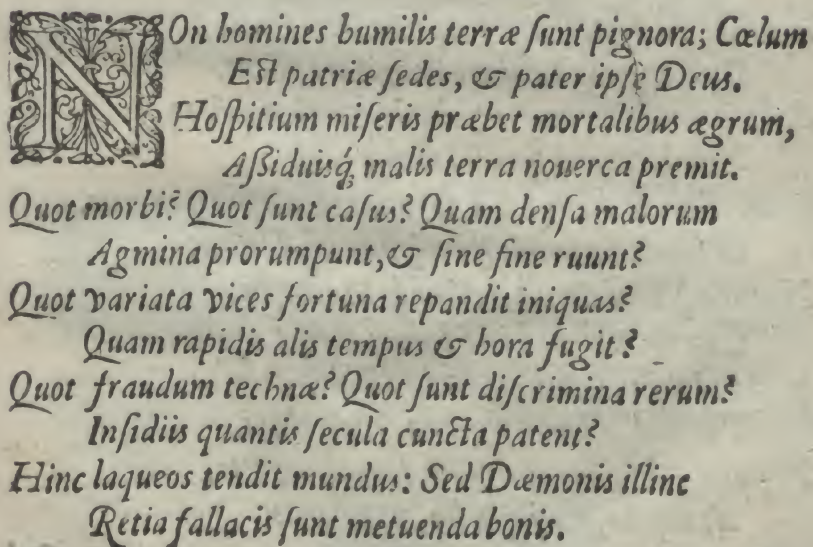 NOn homines humilis terræ ſunt pignora; Cælum
Eſt patriæ ſedes, & pater ipſe Deus.
Hoſpitium miſeris præbet mortalibus ægrum,
Aſsiduisq́; malis terra nouerca premit.
Quot morbi? Quot ſunt caſus? Quam denſa malorum
Agmina prorumpunt, & ſine fine ruunt?
Quot variata vices fortuna repandit iniquas?
Quam rapidis alis tempus & hora fugit?
Quot fraudum technæ? Quot ſunt diſcrimina rerum?
Inſidiis quantis ſecula cuncta patent?
Hinc laqueos tendit mundus: Sed Dæmonis illinc
Retia fallacis ſunt metuenda bonis.